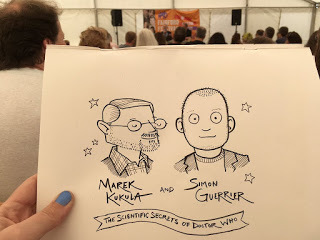 MAREK
KUKULA
AND
SIMON
GUERRIER
THE SCIENTIFIC SECRETS OF DOCTOR WHO